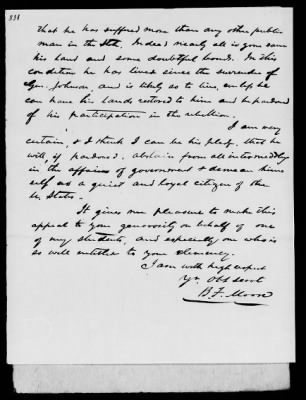 331
that he has suffered more than any other public
man in the State. Indeed nearly all is gone save
his land and some doubtful bonds. In this
condition he has lived since the surrender of
Gen. Johnson, and is likely so to live, unless he
can have his lands restored to him and be pardoned
of his participation in the rebellion.
I am very
certain, & I think I can be his pledge, that he
will, if pardoned, abstain from all intermeddling
in the affairs of government & demean him
self as a quiet and loyal citizen of the
U. States.
It gives me pleasure to make this
appeal to your generosity on behalf of one
of my students, and especially one who is
so well entitled to your clemency.
I am with high respect
Yr. Obt Servt
B. F. Moore